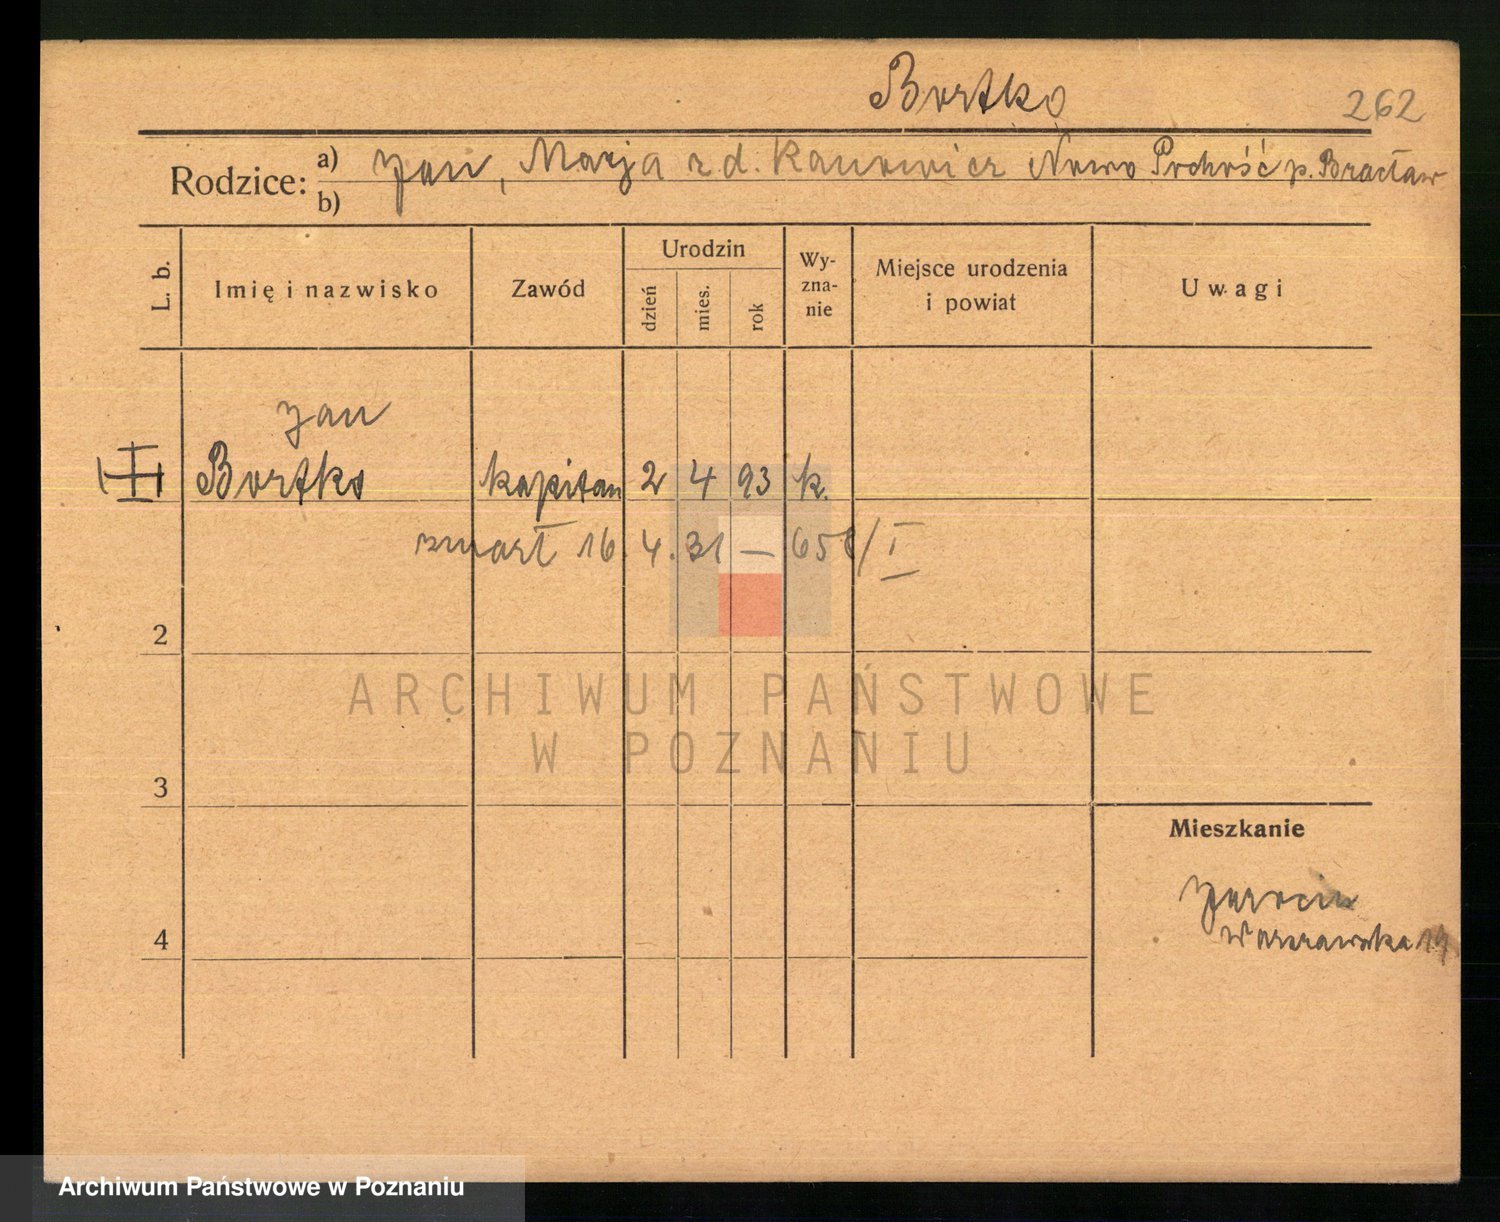 Bortko 262
Rodzice: a) Jan, Marja z d. Kanowicz Nowo p. Bracław
b)
L. b. Imię i nazwisko Zawód Urodzin dzień mies. rok Wy-zna-nie Miejsce urodzenia i powiat Uwagi
Jan
Bortko kapitan 2 4 93 k.
zmarł 16. 4. 31 — 658/I
2
ARCHIWUM PAŃSTWOWE
W POZNANIU
3
Mieszkanie
Jarocin
4
Warszawska 19
Archiwum Państwowe w Poznaniu